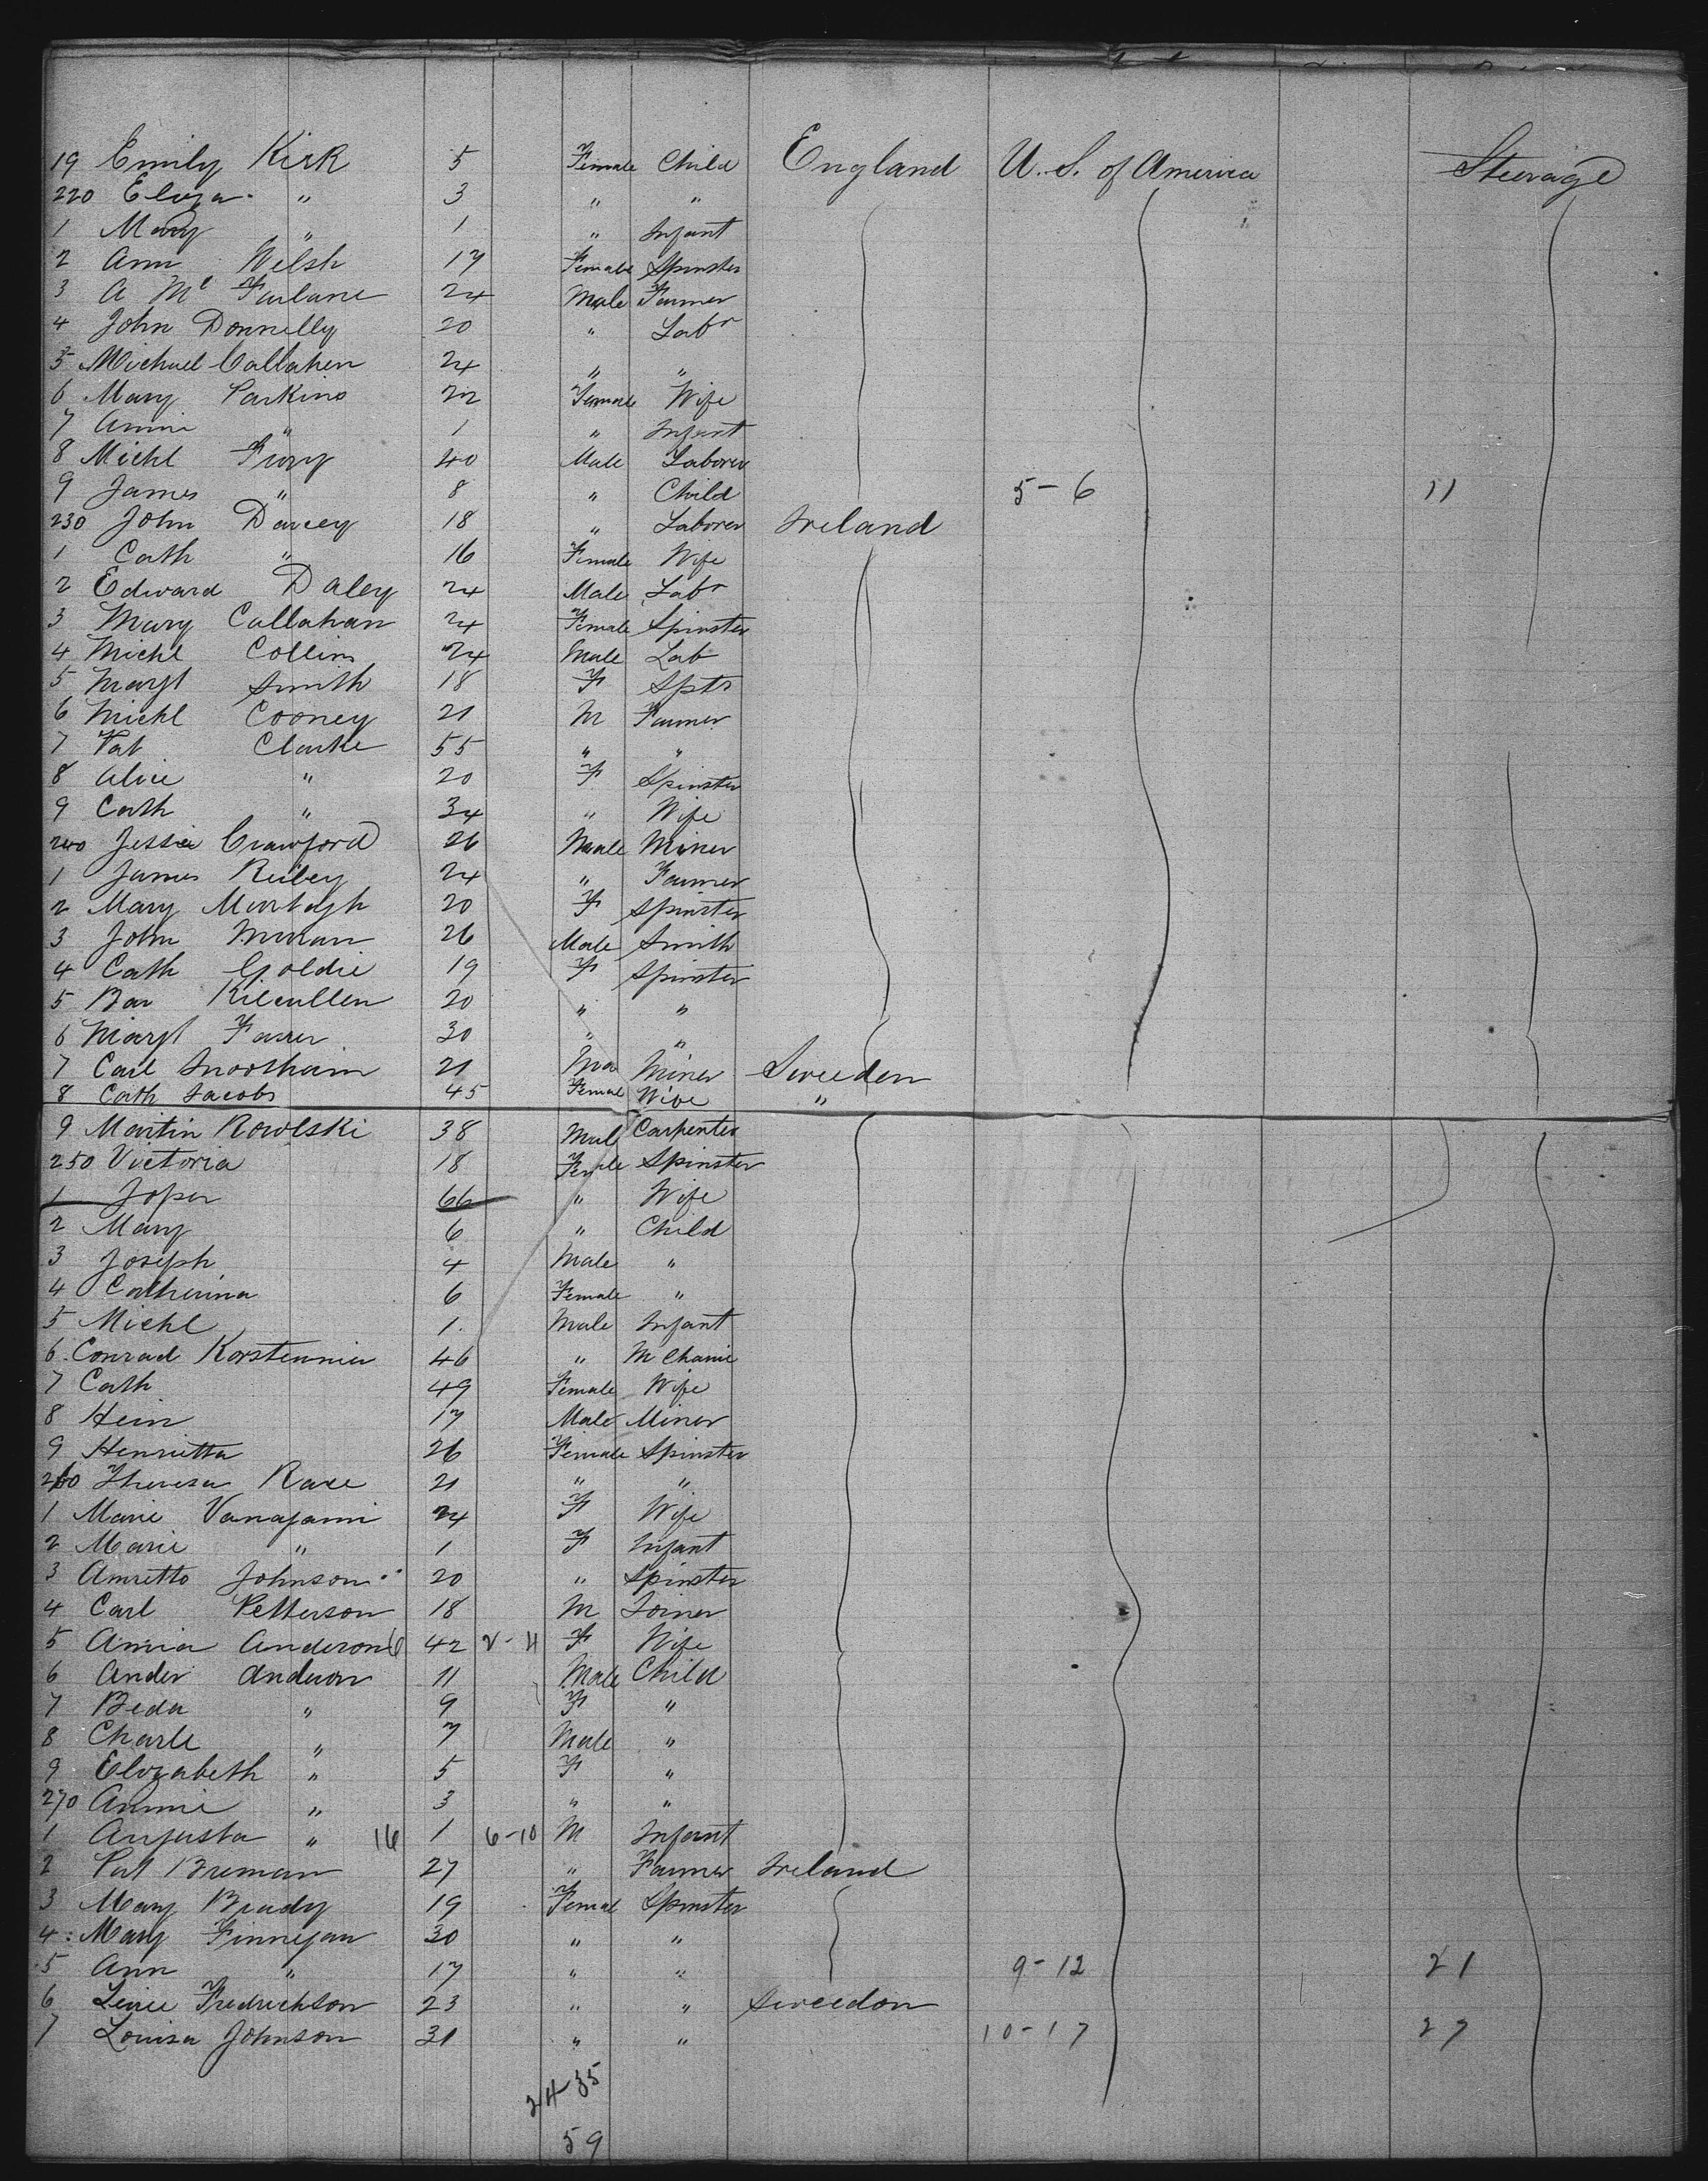 19 Emily Kirk 5 Female Child England U. S. of America Steerage
220 Eliza " 3 " "
1 Mary " 1 " Infant
2 Ann Welsh 17 Female Spinster
3 A Mc Farlane 24 Male Farmer
4 John Donnelly 20 " Labr
5 Michael Callahen 24 " "
6 Mary Parkins 22 Female Wife
7 Annie " 1 " Infant
8 Michl Fury 40 Male Laborer
9 James " 8 " Child 5-6 11
230 John Darcey 18 " Laborer Ireland
1 Cath " 16 Female Wife
2 Edward Daley 24 Male Labr
3 Mary Callahan 24 Female Spinster
4 Michl Collins 24 Male Lab
5 Margt Smith 18 F Spts
6 Michl Cooney 21 M Farmer
7 Pat Clarke 55 " "
8 Alice " 20 F Spinster
9 Cath " 34 " Wife
240 Jessie Crawford 26 Male Miner
1 James Reiley 24 " Farmer
2 Mary Murtagh 20 F Spinster
3 John 26 Male Smith
4 Cath Goldie 19 F Spinster
5 Bar Kilcullen 20 " "
6 Margt 30 " "
7 Carl 21 Miner Sweeden
8 Cath Jacobs 45 Female Wife "
9 Martin Rowlski 38 Male Carpenter
250 Victoria 18 Female Spinster
1 66 " Wife
2 Mary 6 " Child
3 Joseph 4 Male "
4 Catherina 6 Female "
5 Michl 1 Male Infant
6 Conrad 46 " M Chanic
7 Cath 49 Female Wife
8 Hein 17 Male Miner
9 Henrietta 26 Female Spinster
260 Theresa 21 " "
1 Marie 24 F Wife
2 Marie " 1 F Infant
3 Johnson 20 " Spinster
4 Carl Petterson 18 M Joiner
5 Anderon 6 42 2-4 F Wife
6 Ander Anderon 11 Male Child
7 Beda " 9 F "
8 Charle " 7 Male "
9 Elizabeth " 5 F "
270 Annie " 3 " "
1 Augusta " 16 1 6-10 M Infant
2 Pat Brennan 27 " Farmer Ireland
3 Mary Brady 19 Female Spinster
4 Mary Finnegan 30 " "
5 Ann " 17 " " 9-12 21
6 Fredrickson 23 " " Sweedon
7 Louisa Johnson 31 " " 10-17 27
24-35
59